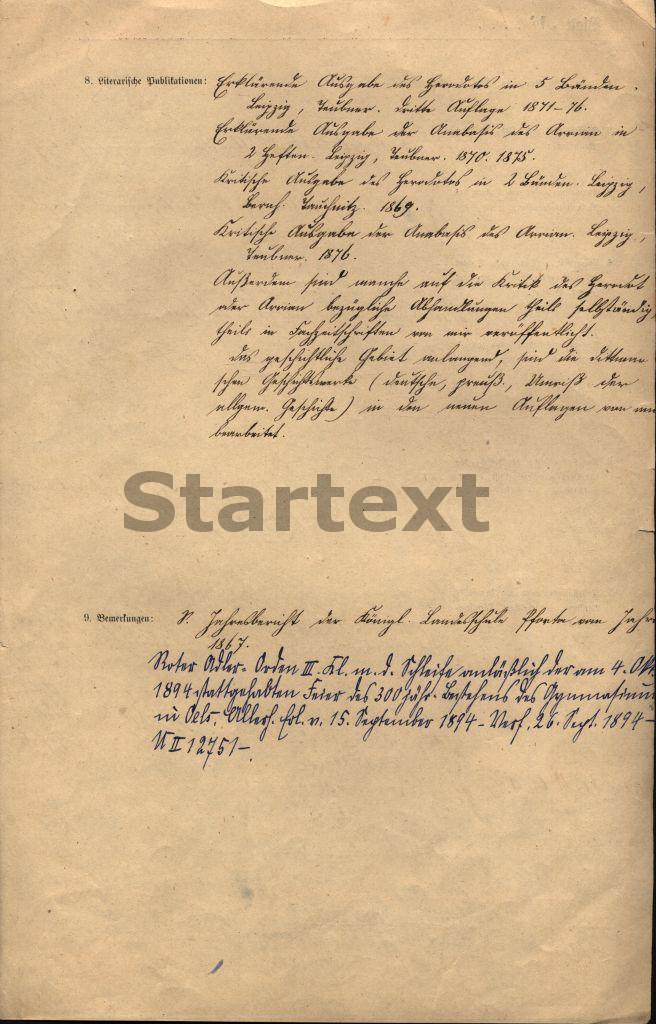 8. Literarische Publikationen: Erklärende Ausgabe des Herodotos in 5 Bänden.
Leipzig, Teubner. Dritte Auflage 1871–76.
Erklärende Ausgabe der Anabasis des Arrian in
2 Heften. Leipzig, Teubner. 1870. 1875.
Kritische Ausgabe des Herodotos in 2 Bänden. Leipzig,
Bernh. Tauchnitz. 1869.
Kritische Ausgabe der Anabasis des Arrian. Leipzig,
Teubner. 1876.
Außerdem sind manche auf die Kritik des Herodot
oder Arrian bezügliche Abhandlungen theils selbständig,
theils in Fachzeitschriften von mir veröffentlicht.
Das geschichtliche Gebiet anlangend, sind die dittmar
schen Geschichtswerke (deutsche, preuß., Umriß der
allgem. Geschichte) in den neuen Auflagen von
bearbeitet.
Startext
9. Bemerkungen: S. Jahresbericht der Königl. Landesschule Pforta vom Jahre
1867.
Roter Adler-Orden III. Kl. m. d. Schleife anläßlich der am 4. Okt
1894 stattgehabten Feier des 300jähr. Bestehens des Gymnasiums
in Oels. Allerh. Erl. v. 15. September 1894 – Verf. 26. Sept. 1894 –
U II 12751 –.